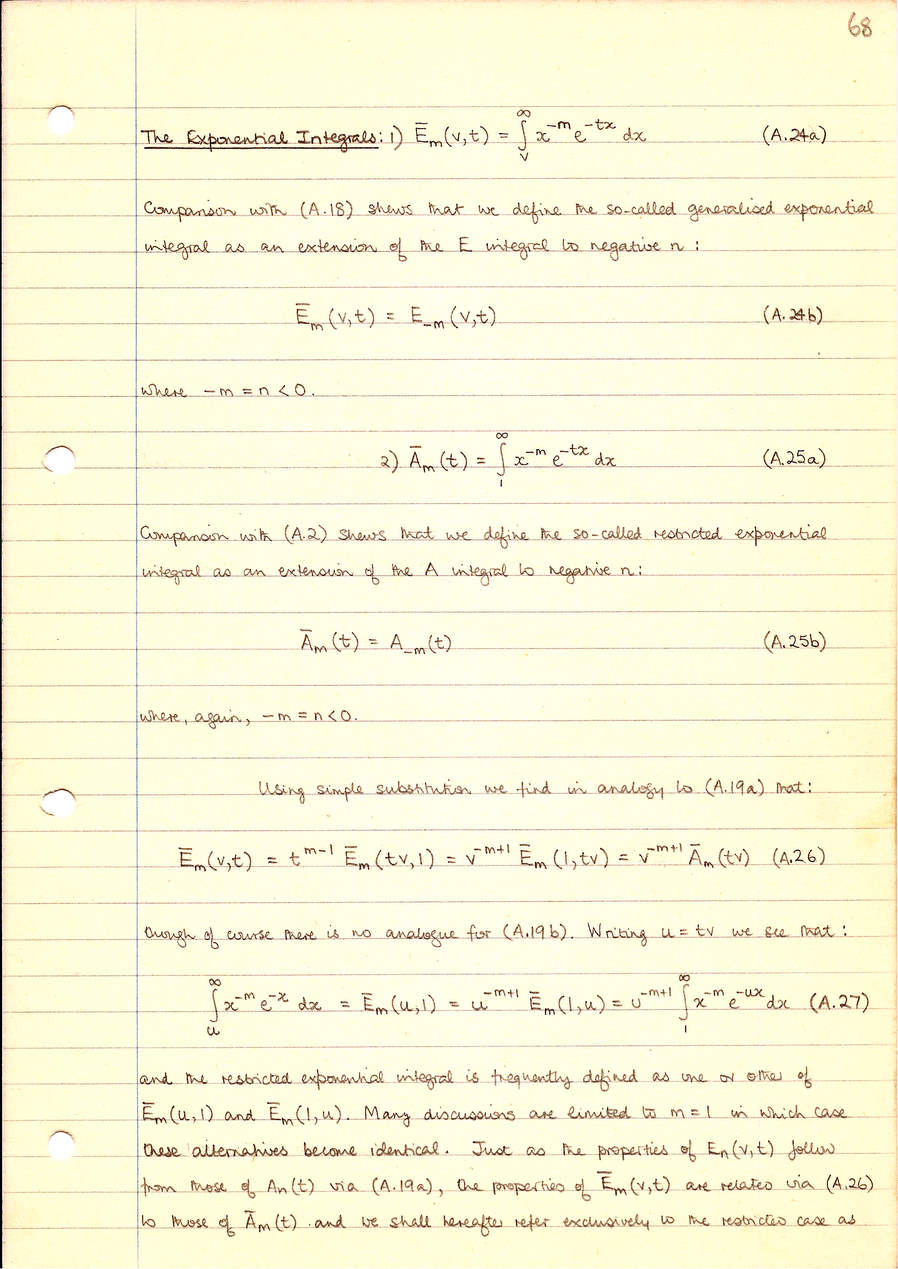 68
The Exponential Integrals: 1) Ē_m(v,t) = ∫_v^∞ x^{-m} e^{-tx} dx (A.24a)
Comparison with (A.18) shews that we define the so-called generalised exponential
integral as an extension of the E integral to negative n :
Ē_m(v,t) = E_{-m}(v,t) (A.24b)
where -m = n < 0.
2) Ā_m(t) = ∫_1^∞ x^{-m} e^{-tx} dx (A.25a)
Comparison with (A.2) shews that we define the so-called restricted exponential
integral as an extension of the A integral to negative n:
Ā_m(t) = A_{-m}(t) (A.25b)
where, again, -m = n < 0.
Using simple substitution we find in analogy to (A.19a) that:
Ē_m(v,t) = t^{m-1} Ē_m(tv,1) = v^{-m+1} Ē_m(1,tv) = v^{-m+1} Ā_m(tv) (A.26)
though of course there is no analogue for (A.19b). Writing u = tv we see that :
∫_u^∞ x^{-m} e^{-x} dx = Ē_m(u,1) = u^{-m+1} Ē_m(1,u) = u^{-m+1} ∫_1^∞ x^{-m} e^{-ux} dx (A.27)
and the restricted exponential integral is frequently defined as one or other of
Ē_m(u,1) and Ē_m(1,u). Many discussions are limited to m = 1 in which case
these alternatives become identical. Just as the properties of E_n(v,t) follow
from those of A_n(t) via (A.19a), the properties of Ē_m(v,t) are related via (A.26)
to those of Ā_m(t) and we shall hereafter refer exclusively to the restricted case as